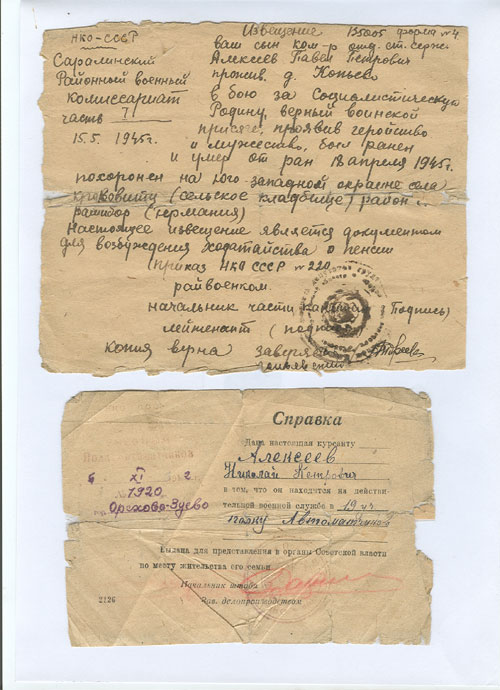 НКО-СССР
Саралинский
Районный военный
комиссариат
часть 7
15.5 1945г.
Извещение 135005 форма №4
ваш сын ком-р отд. ст. серж.
Алексеев Павел Петрович
прожив. д. Копьево
в бою за Социалистическую
Родину, верный воинской
присяге, проявив геройство
и мужество, был ранен
и умер от ран 18 апреля 1945г.
похоронен на юго-западной окраине села
(сельское кладбище) район
(Германия)
Настоящее извещение является документом
для возбуждения ходатайства о пенсии
(приказ НКО СССР №220
райвоенком.
начальник части капитан (Подпись)
лейтенант (подпись)
копия верна заверять
Справка
Дана настоящая курсанту
Алексеев
Николай Петрович
в том, что он находится на действи-
тельной военной службе в 19 уч
полку Автоматчиков
Выдана для представления в органы Советской власти
по месту жительства его семьи
Начальник штаба
Зав. делопроизводством
6 XI г
1920
Орехово-Зуево
2126